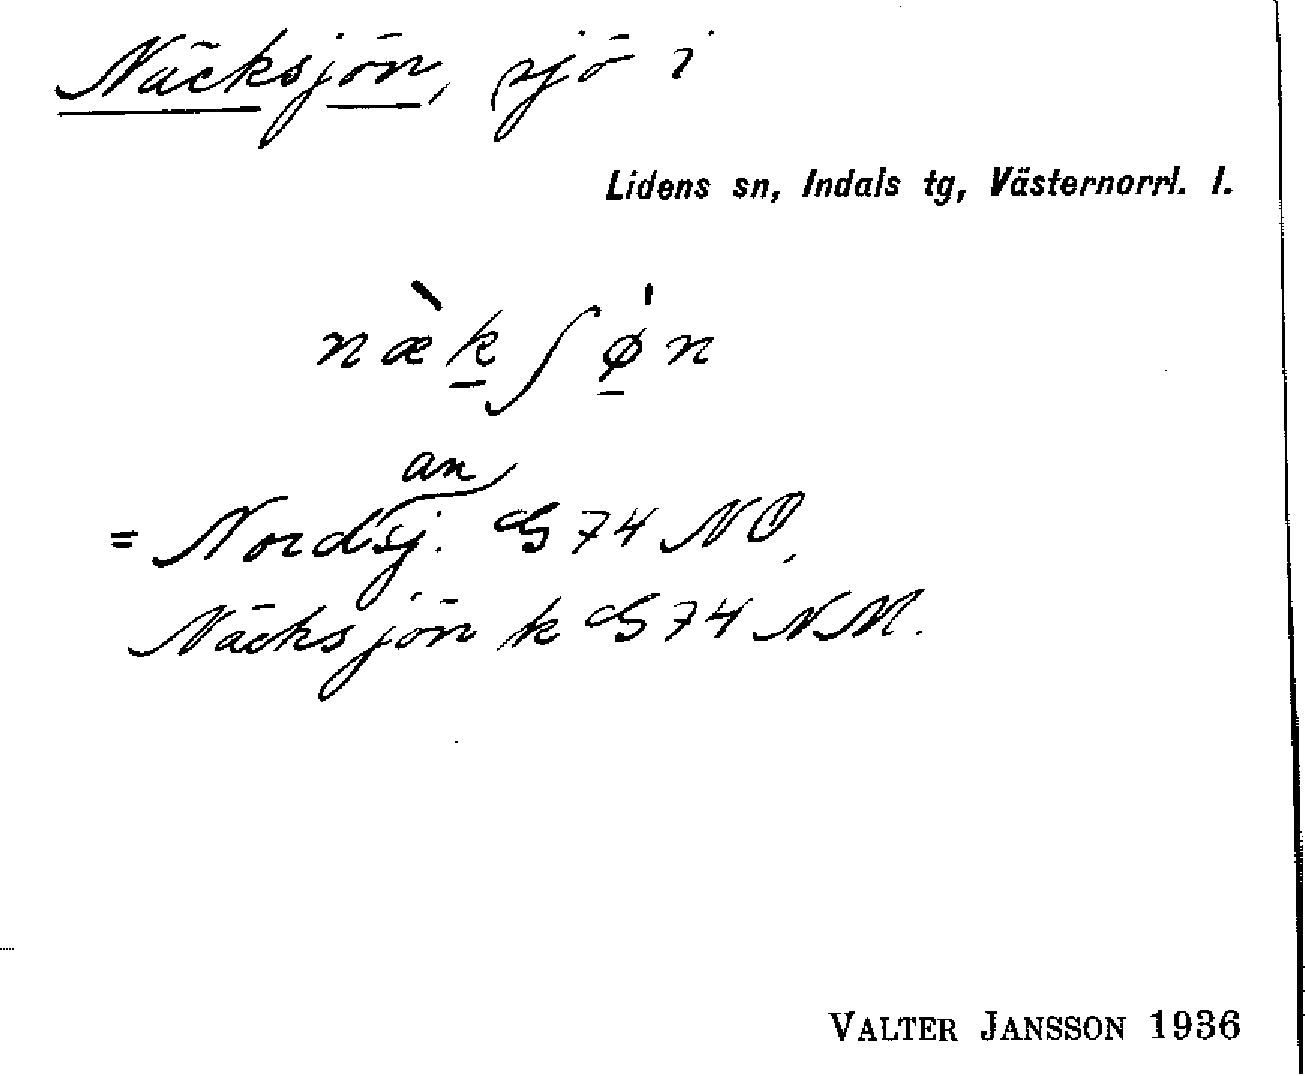 Näcksjön, sjö i
Lidens sn, Indals tg, Västernorrl. l.
næ̀kʃø̍n
an
= Nordsj. G 74 NO,
Näcksjön k G 74 NM.
VALTER JANSSON 1936